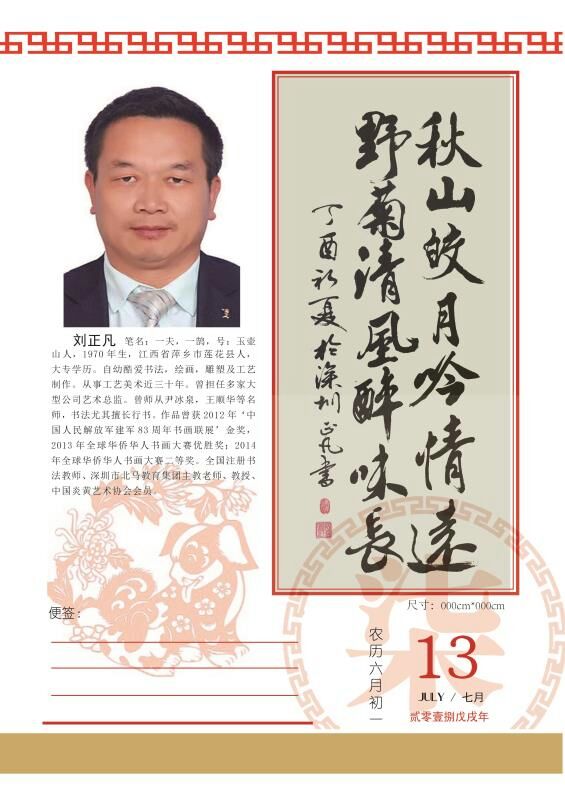 刘正凡 笔名：一夫，一鹄，号：玉壶
山人，1970 年生，江西省萍乡市莲花县人，
大专学历。自幼酷爱书法，绘画，雕塑及工艺
制作。从事工艺美术近三十年。曾担任多家大
型公司艺术总监。曾师从尹冰泉，王顺华等名
师，书法尤其擅长行书。作品曾获 2012 年‘中
国人民解放军建军 83 周年书画联展’金奖，
2013 年全球华侨华人书画大赛优胜奖；2014
年全球华侨华人书画大赛二等奖。全国注册书
法教师、深圳市北马教育集团主教老师、教授、
中国炎黄艺术协会会员。
秋山皎月吟情远
野菊清风醉味長
丁酉初夏於深圳正凡书
尺寸：000cm*000cm
便签：
农历六月初一
柒
13
JULY / 七月
贰零壹捌戊戌年